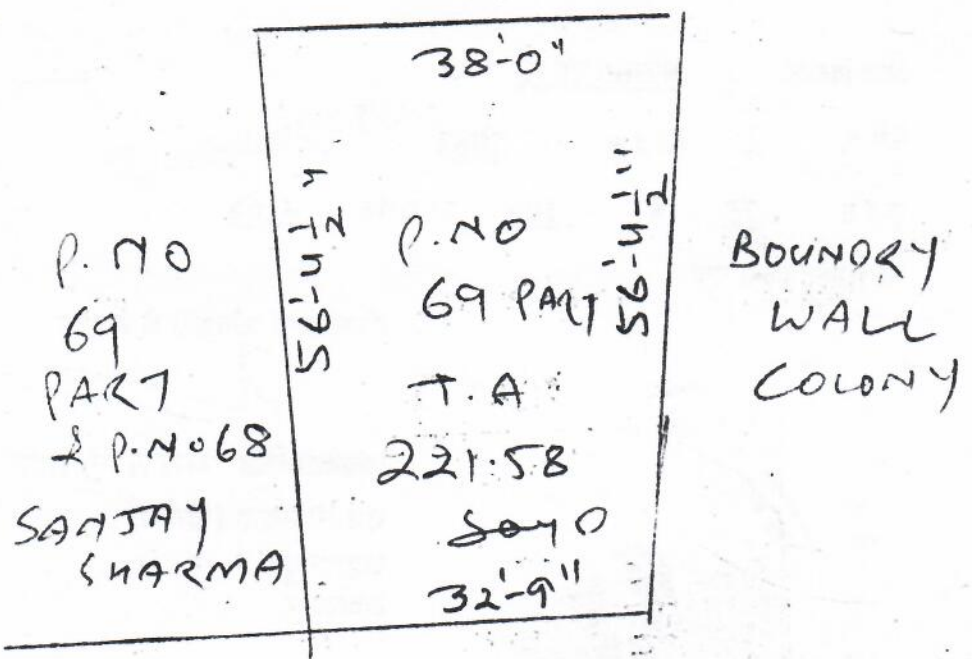 38'-0"
P.NO
69
PART
& P.NO 68
SANJAY
SHARMA
56'-4 1/2"
P.NO
69 PART
T.A
221.58
32'-9"
56'-4 1/2"
BOUNDRY
WALL
COLONY